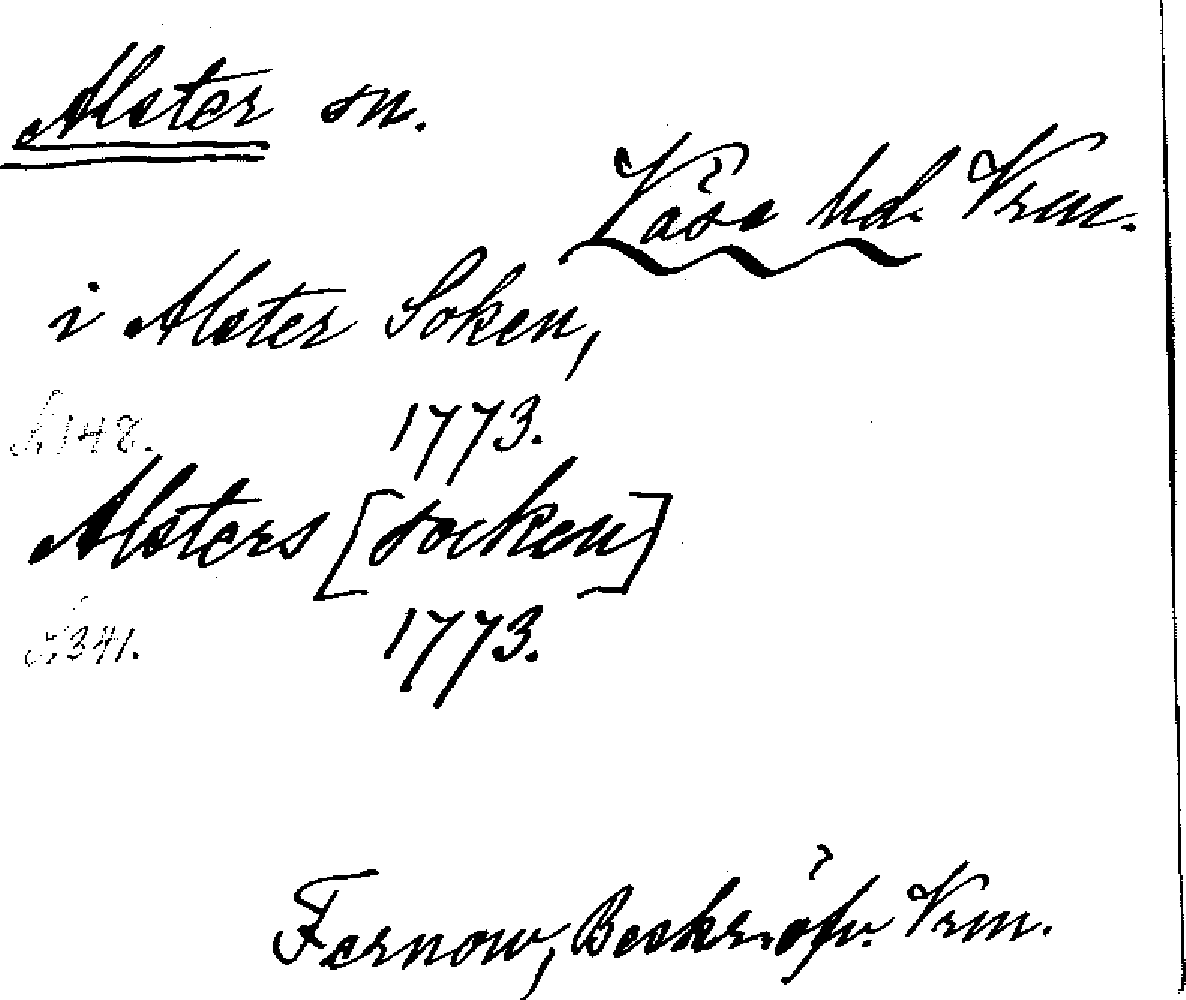 Alster sn.
Väse hd. Vrm.
i Alster Soken,
S. 148. 1773.
Alsters [socken]
S. 341. 1773.
Fernow, Beskr. öfv. Vrm.